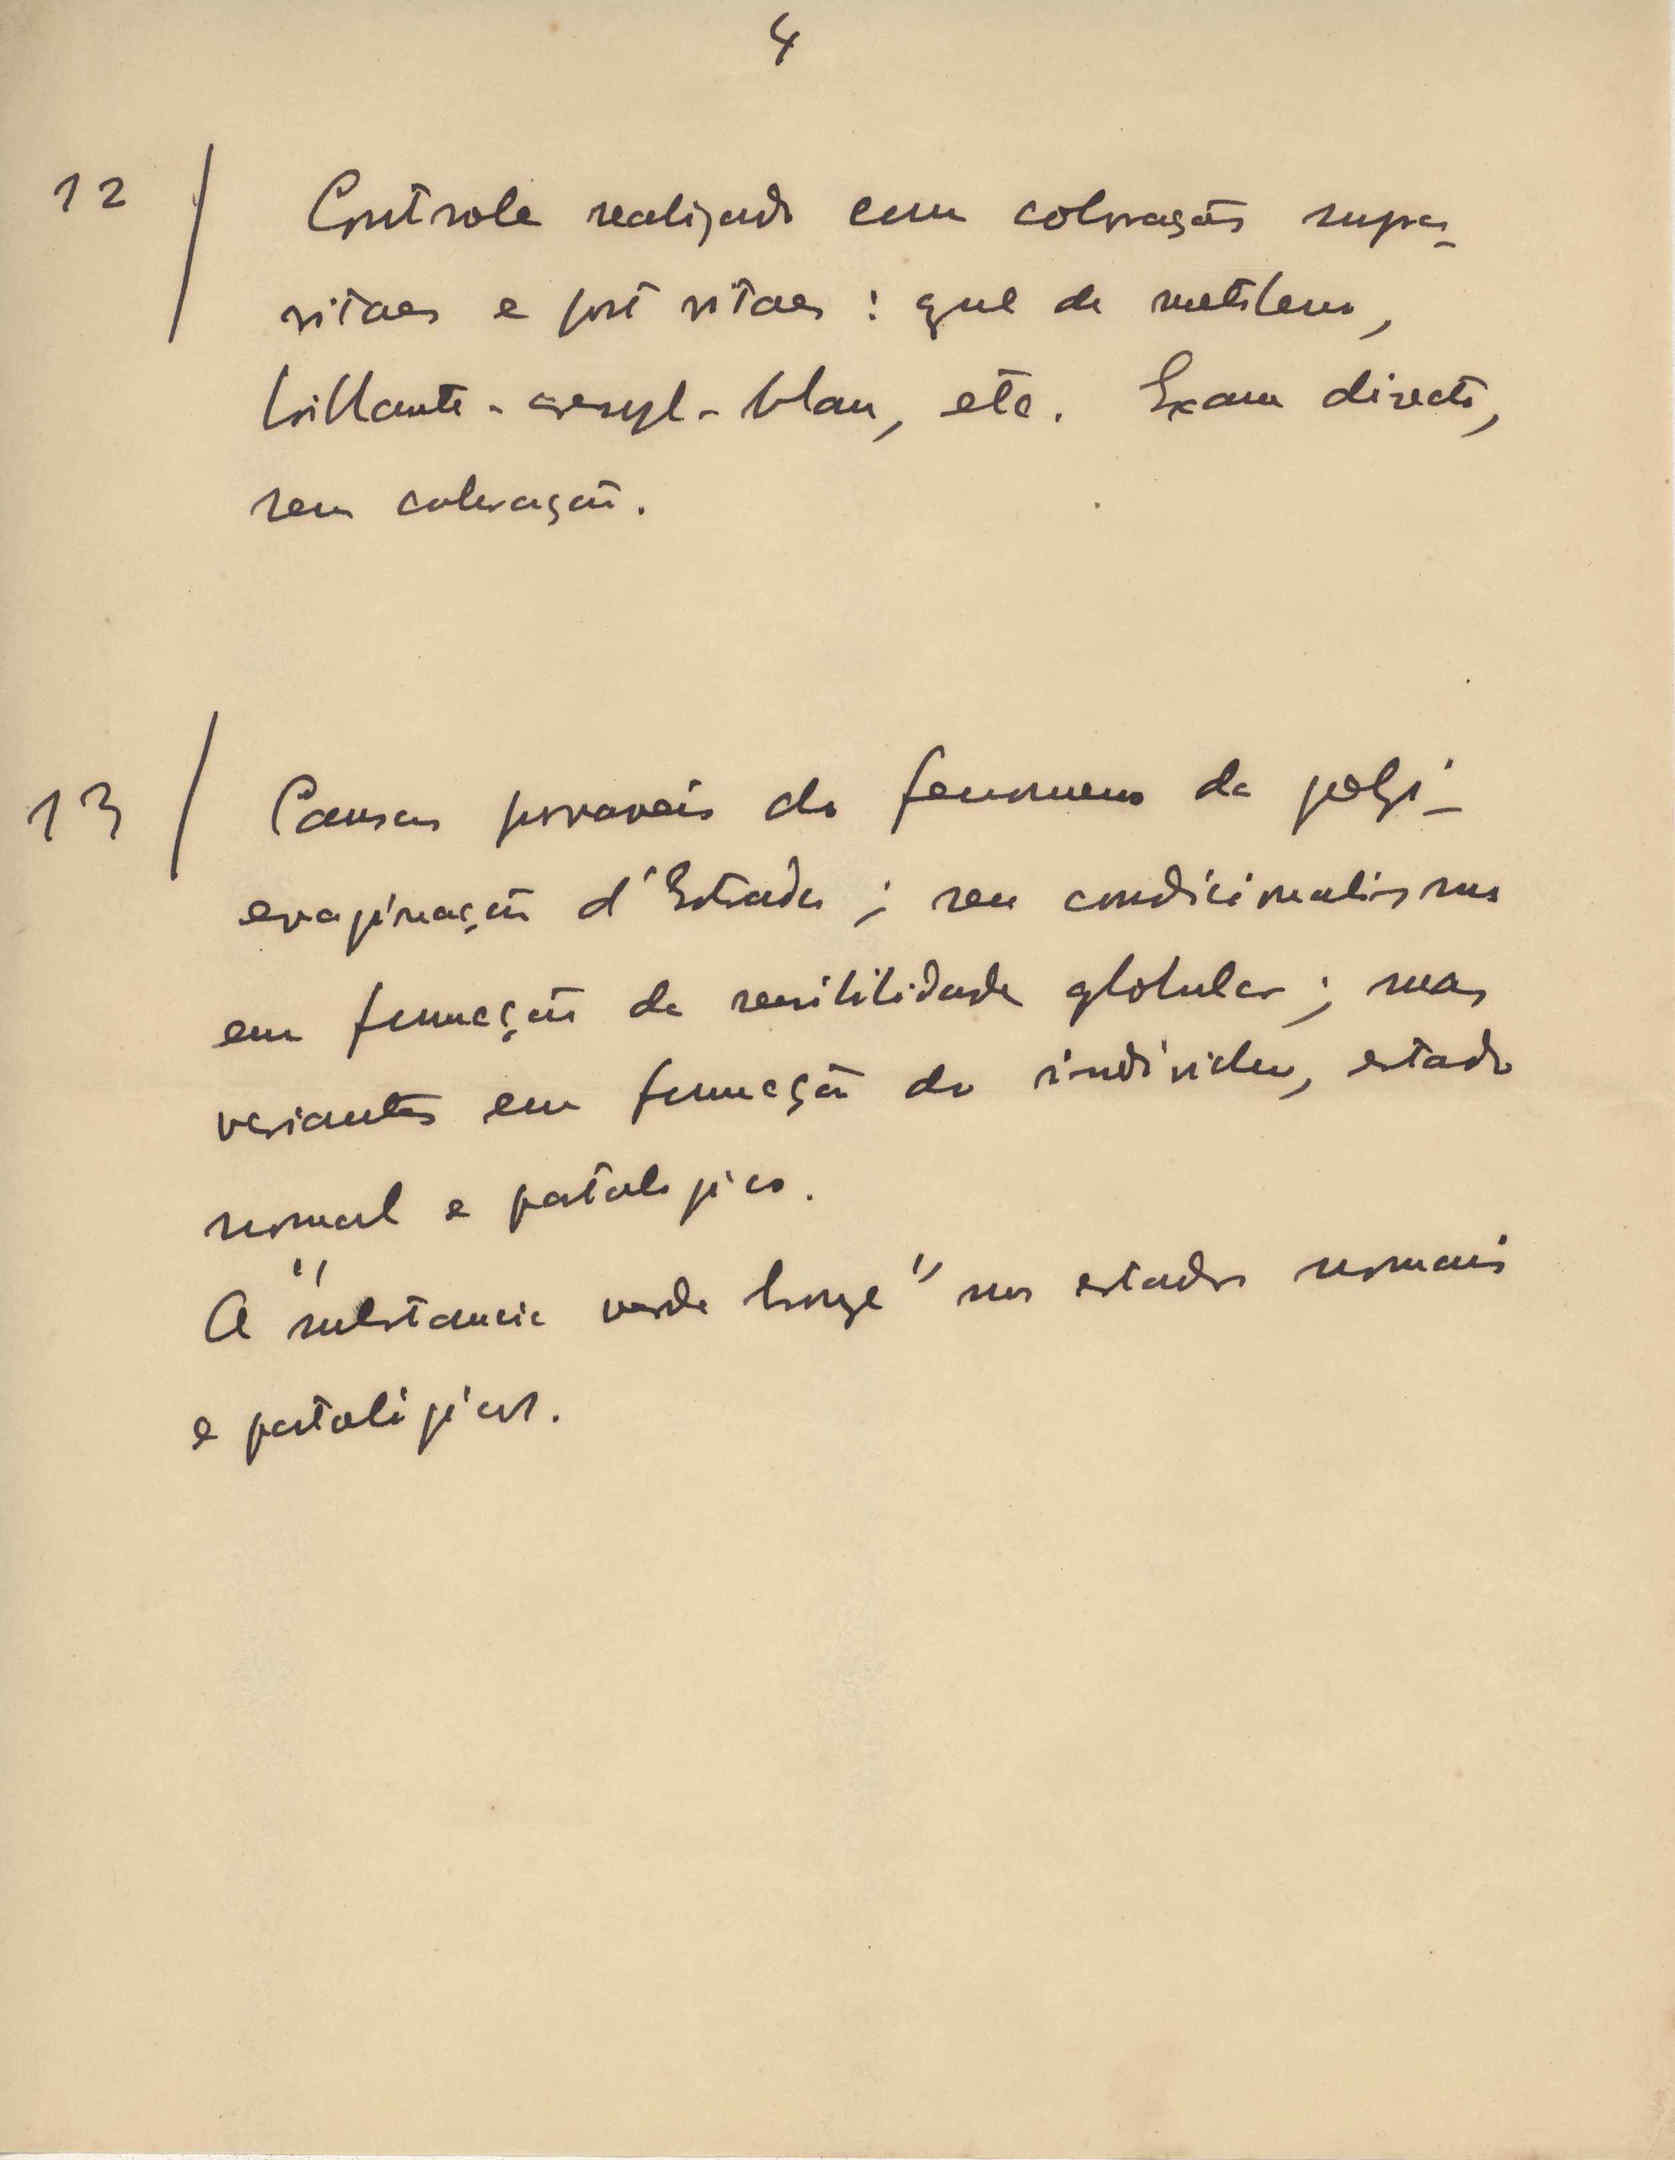 4
12 / Controle realizado com colorações supra-
vitaes e post vitaes : azul de metileno,
brillante-cresyl-blau, etc. Exame directo,
sem coloração.
13 / Causas provaveis do fenomeno da poli-
evaginação d'Estrada ; seu condicionalismo
em funcção da sensibilidade globular ; suas
variantes em funcção do individuo, estado
normal e patologico.
A "substancia verde bronze" nos estados normais
e patológicos.